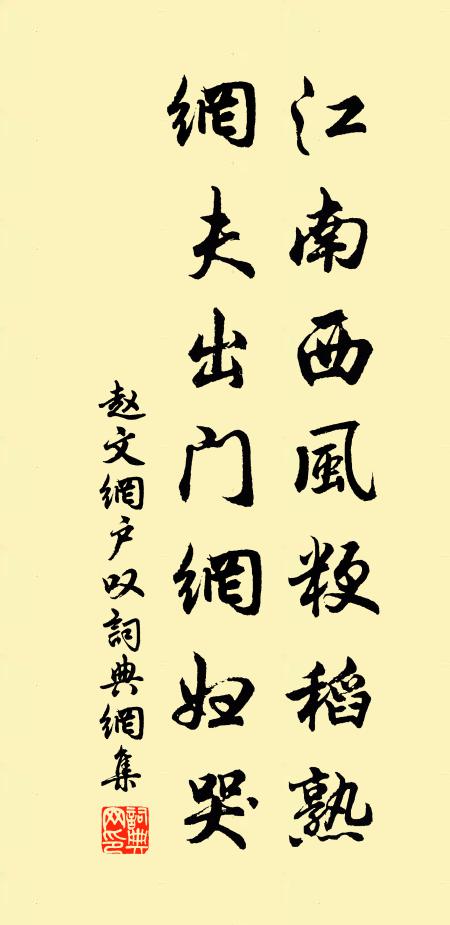 江南西風粳稻熟
網夫出门網妇哭
赵文網户叹詞典網集
詞典網印